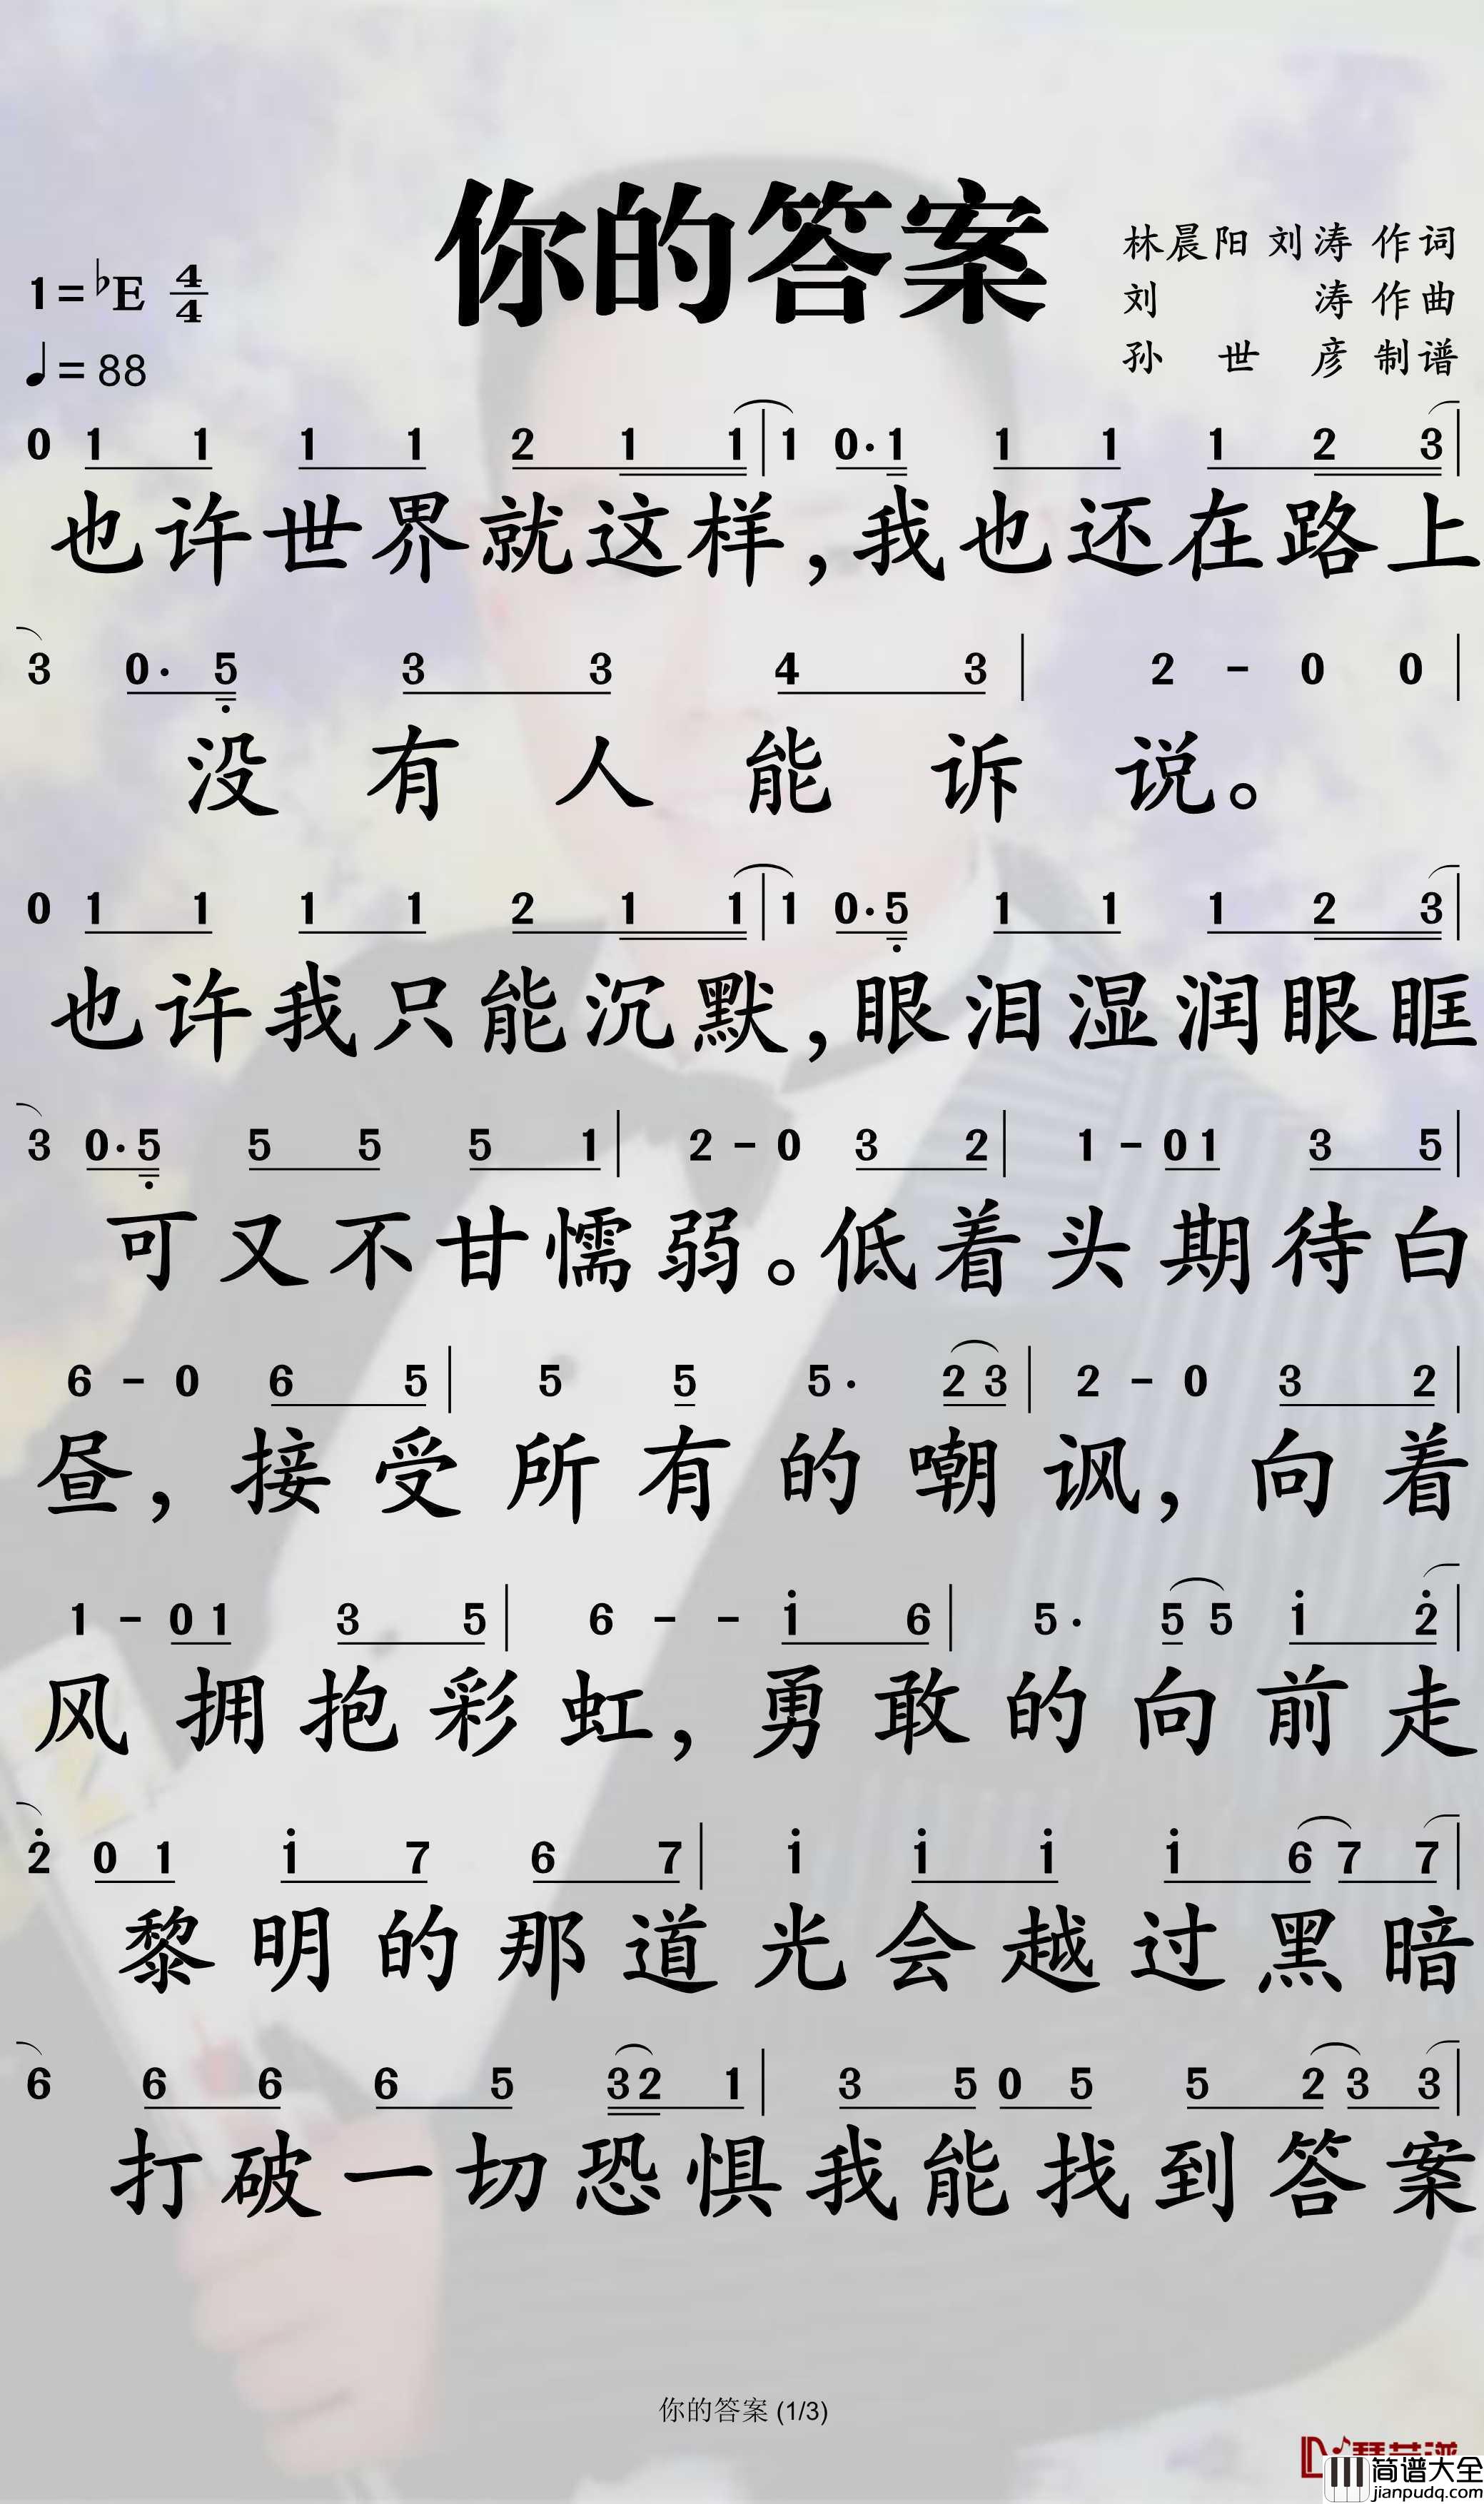 你的答案
林晨阳 刘涛 作词
刘 涛 作曲
孙 世 彦 制谱
1=♭E 4/4
♩=88
0 1 1 1 1 2 1 1 | 1 0· 1 1 1 1 2 3 |
也许世界就这样，我也还在路上
3 0· 5 3 3 4 3 | 2 - 0 0 |
没有人能诉说。
0 1 1 1 1 2 1 1 | 1 0· 5 1 1 1 2 3 |
也许我只能沉默，眼泪湿润眼眶
3 0· 5 5 5 5 1 | 2 - 0 3 2 | 1 - 0 1 3 5 |
可又不甘懦弱。低着头期待白
6 - 0 6 5 | 5 5 5· 2 3 | 2 - 0 3 2 |
昼，接受所有的嘲讽，向着
1 - 0 1 3 5 | 6 - - 1 6 | 5· 5 5 1 2 |
风拥抱彩虹，勇敢的向前走
2 0 1 1 7 6 7 | 1 1 1 1 6 7 7 |
黎明的那道光会越过黑暗
6 6 6 6 5 3 2 1 | 3 5 0 5 5 2 3 3 |
打破一切恐惧我能找到答案
你的答案 (1/3)
简谱大全
jianpudq.com